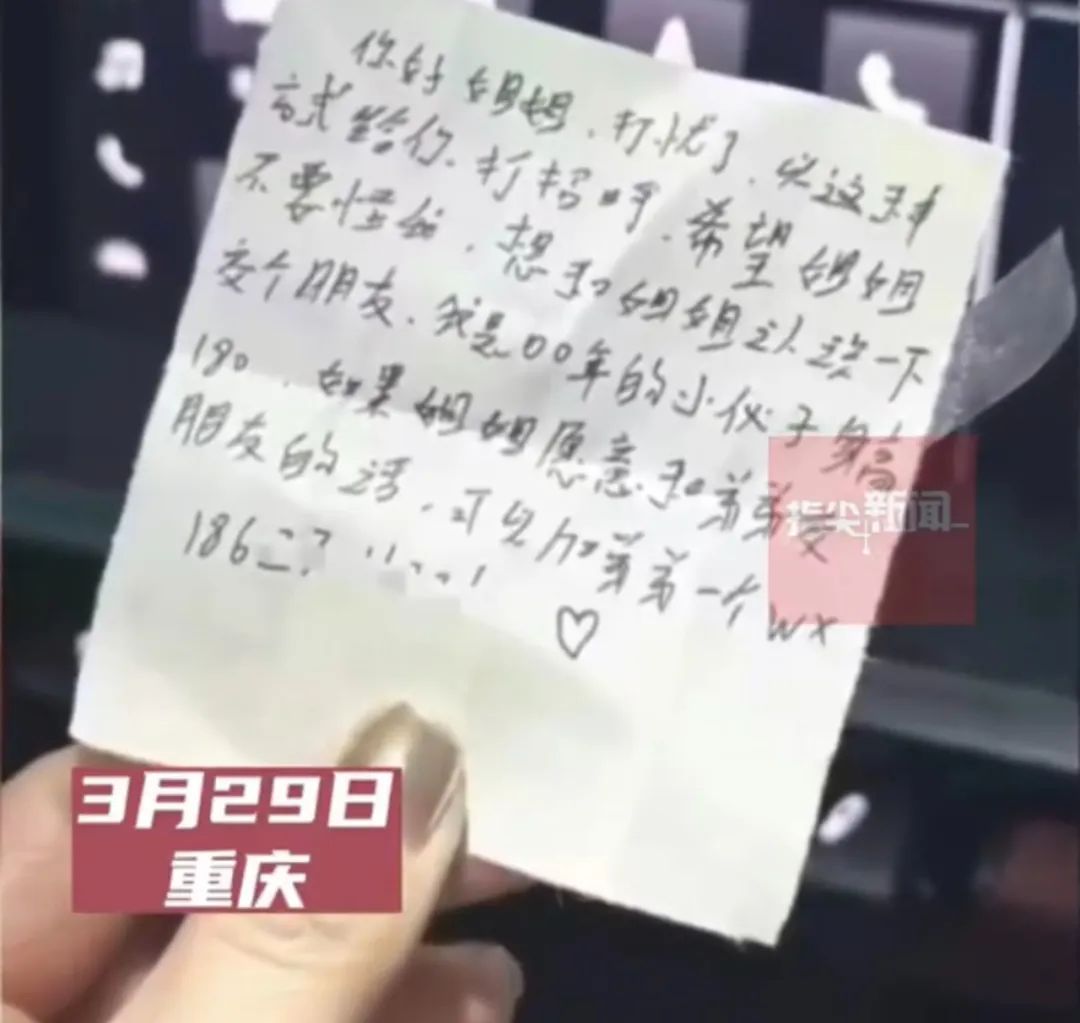 你好姐姐、打扰了、以这种
方式给你、打招呼、希望姐姐
不要怪我、想和姐姐认识一下
交个朋友、我是00年的小伙子身高
180、如果姐姐愿意和弟弟交
朋友的话、可以加弟弟一个wx
186
♡
指尖新闻
3月29日
重庆